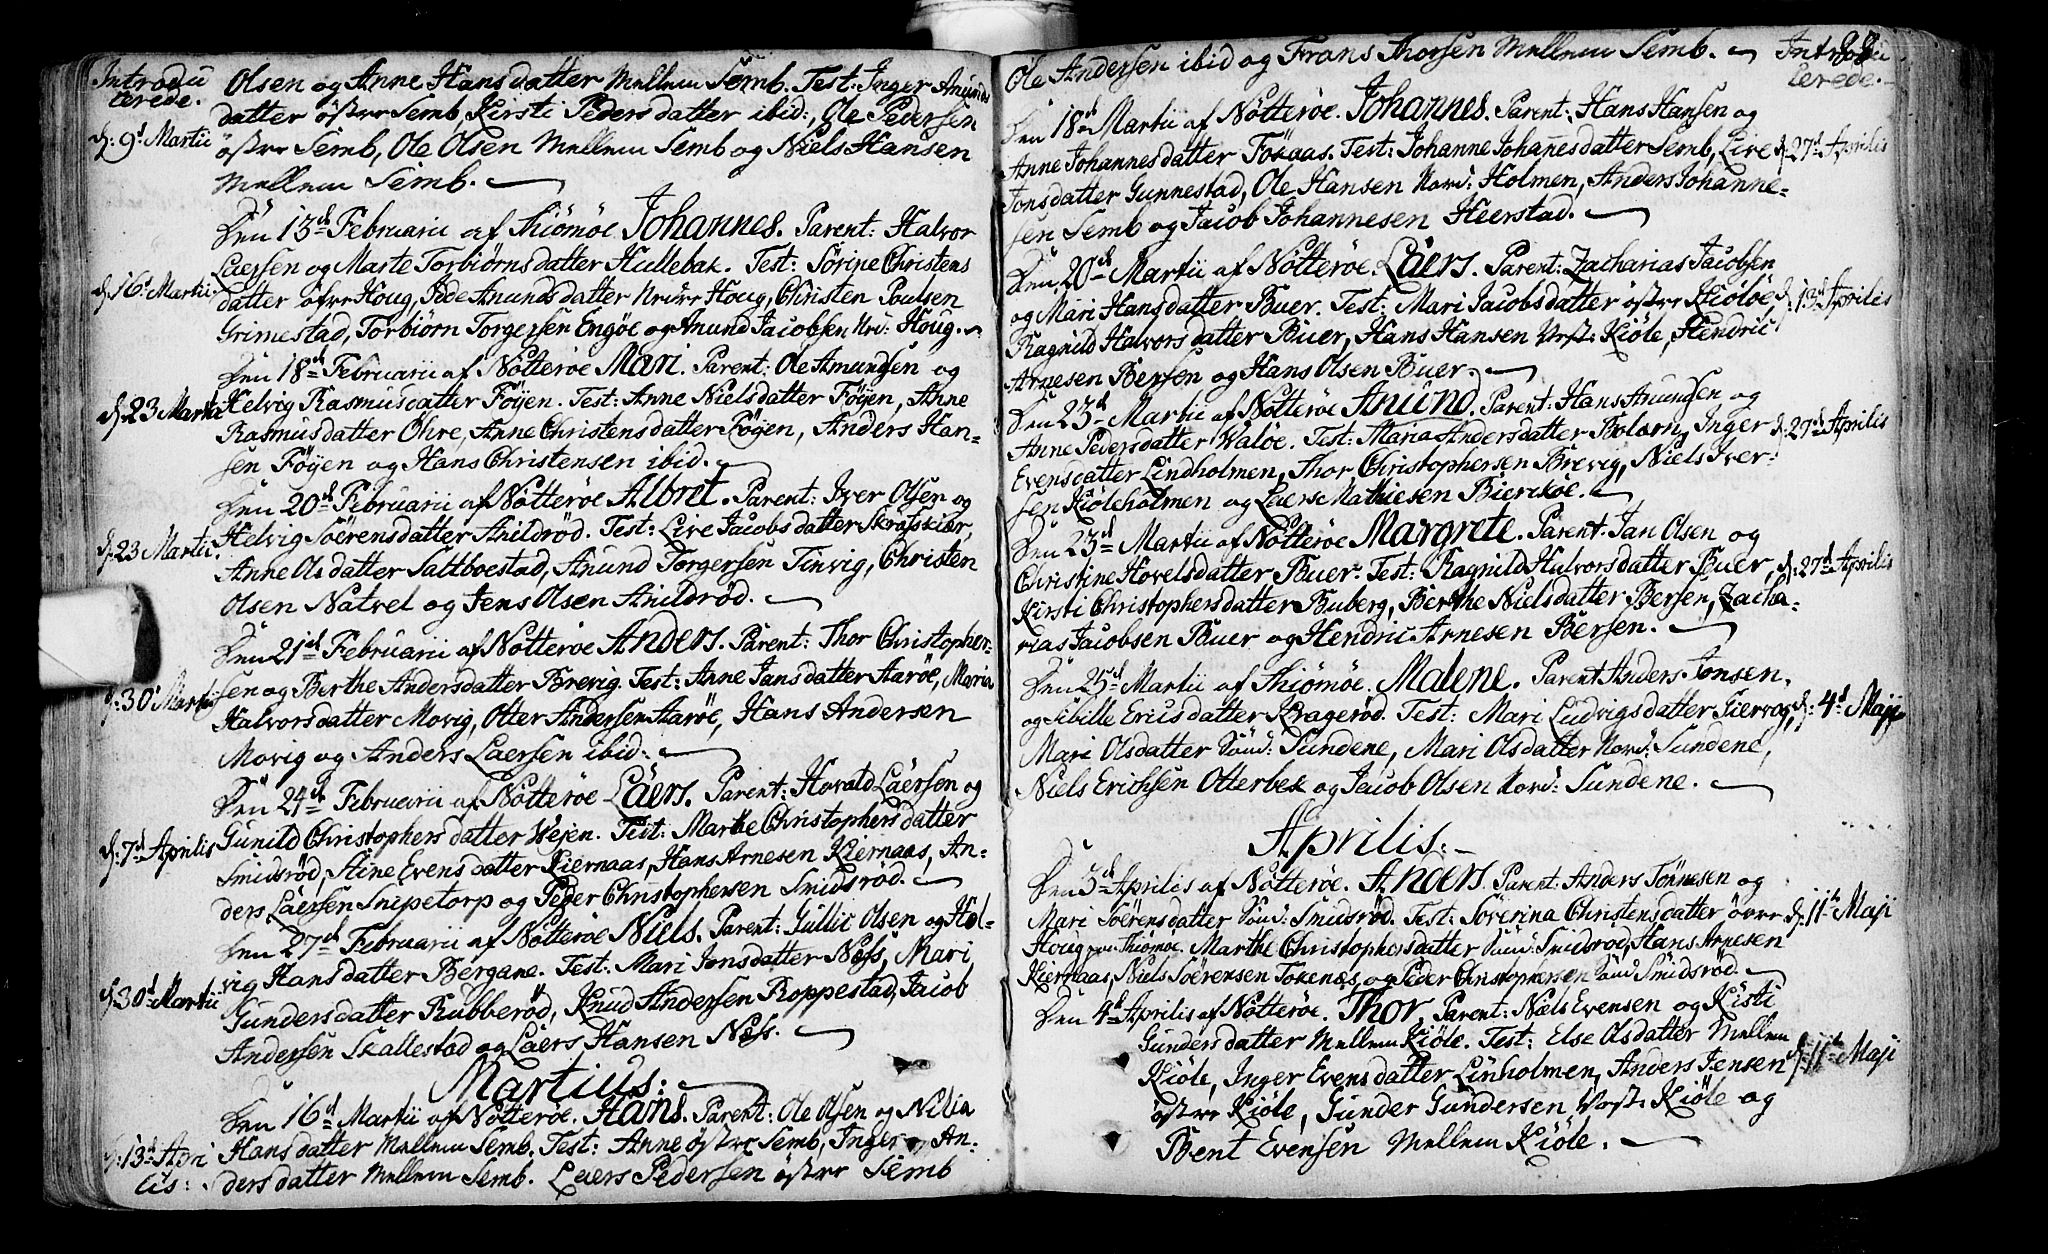 Introdu
cerede.
Olsen og Anne Hansdatter Mellem Semb. Test: Inger Anunds
datter östre Semb, Kirsti Pedersdatter ibid:, Ole Pedersen
d: 9d Martii
östre Semb, Ole Olsen Mellem Semb og Niels Hansen
Mellem Semb.
Den 13d Februarii af Thiömöe Johannes. Parent: Halvor
Laersen og Marte Torbiörnsdatter Hullebak. Test: Sörine Christens
d: 16d Martii
datter öfre Houg, Pede Anundsdatter Nedre Houg, Christen Poulsen
Grimestad, Torbiörn Torgersen Engöe og Anund Jacobsen Ned: Houg.
Den 18d Februarii af Nötteröe Mari. Parent: Ole Amundsen og
d: 23 Martii
Helvig Rasmusdatter Föyen. Test: Anne Nielsdatter Föyen, Anne
Rasmusdatter Ohre, Anne Christensdatter Föyen, Anders Han-
sen Föyen og Hans Christensen ibid.
Den 20d Februarii af Nötteröe Albret. Parent: Iver Olsen og
Helvig Soerensdatter Anildröd. Test: Live Jacobsdatter Skrafskiær,
d: 23 Martii.
Anne Olsdatter Saltboestad, Anund Torgersen Tinvig, Christen
Olsen Natvel og Jens Olsen Anildröd.
Den 21d Februarii af Nötteröe Anders. Parent: Thor Christopher-
sen og Berthe Andersdatter Brevig. Test: Anne Jansdatter Aaröe, Maria
d: 30d Martii
Halvorsdatter Movig, Otter Andersen Aaröe, Hans Andersen
Movig og Anders Laersen ibid:
Den 24d Februarii af Nötteröe Läers. Parent: Hovald Laersen og
Gunild Christophersdatter Wejen. Test: Marthe Christophersdatter
d: 7d Aprilis
Smidsröd, Stine Evensdatter Kiernaas, Hans Arnesen Kiernaas, An-
ders Läersen Snipetorp og Peder Christophersen Smidsröd.
Den 27d Februarii af Nötteröe Niels. Parent: Gullic Olsen og Hel-
vig Hansdatter Bergane. Test: Mari Jonsdatter Næss, Mari
d: 30d Martii
Gundersdatter Rubberöd, Knud Andersen Roppestad, Jacob
Andersen Skallestad og Läers Hansen Næss.
Martius:
Den 16d Martii af Nötteröe. Hans. Parent: Ole Olsen og Nilia
d: 13d Apri
lis:
Hansdatter Mellem Semb. Test: Anne östre Semb, Inger An-
dersdatter Mellem Semb. Laers Pedersen östre Semb
Ole Andersen ibid og Frans Thorsen Mellem Semb.
Introdu
cerede.
Den 18d Martii af Nötteröe. Johannes. Parent: Hans Hansen og
Anne Johannesdatter Fökaas. Test: Johanne Johanesdatter Semb, Live
d: 27d Aprilis
Jonsdatter Gunnestad, Ole Hansen Nord: Holmen, Anders Johanne-
sen Semb og Jacob Johannesen Heerstad.
Den 20d Martii af Nötteröe. Läers. Parent: Zacharias Jacobsen
og Mari Hansdatter Buer. Test: Mari Jacobsdatter östre Kiölöe,
d: 13d Aprilis
Ragnild Halvorsdatter Buer, Hans Hansen Vest: Kiöle, Hendric
Arnesen Bersen og Hans Olsen Buer.
Den 23d Martii af Nötteröe Anund. Parent: Hans Anundsen og
Anne Pedersdatter Walöe. Test: Maria Andersdatter Bolærn, Inger
d: 27d Aprilis
Evensdatter Lindholmen, Thor Christophersen Brevig, Niels Iver-
sen Kiöleholmen og Laers Mathiesen Biercköe.
Den 23d Martii af Nötteröe Margrete. Parent: Jan Olsen og
Christine Hovelsdatter Buer. Test: Ragnild Halvorsdatter Buer,
d: 27d Aprilis
Kirsti Christophersdatter Buberg, Berthe Nielsdatter Bersen, Zacha-
rias Jacobsen Buer og Hendric Arnesen Bersen.
Den 25d Martii af Thiömöe. Malene. Parent Anders Jonsen,
og Sibille Ericsdatter Krageröd. Test: Mari Ludvigsdatter Giervog,
d: 4d Maji
Mari Olsdatter Sönd: Sundene, Mari Olsdatter Nord: Sundene,
Niels Erichsen Otterbek og Jacob Olsen Nord: Sundene.
Aprilis:
Den 3d Aprilis af Nötteröe. Anders. Parent: Anders Tönnesen og
Mari Soerensdatter Sönd: Smidsröd. Test: Söverina Christensdatter övre
d: 11te Maji
Houg paa Thiömöe. Marthe Christophersdatter Sönd: Smidsröd, Hans Arnesen
Kiernaas, Niels Soerensen Tokenæs, og Peder Christophersen Sönd: Smidsröd
Den 4d Aprilis af Nötteröe. Thor, Parent: Niels Evensen og Kisti
Gundersdatter Mellem Kiöle. Test: Else Olsdatter Mellem
d: 11te Maji
Kiöle, Inger Evensdatter Linholmen, Anders Jensen
östre Kiöle, Gunder Gundersen, Vest: Kiöle og
Bent Evensen Mellem Kiöle.